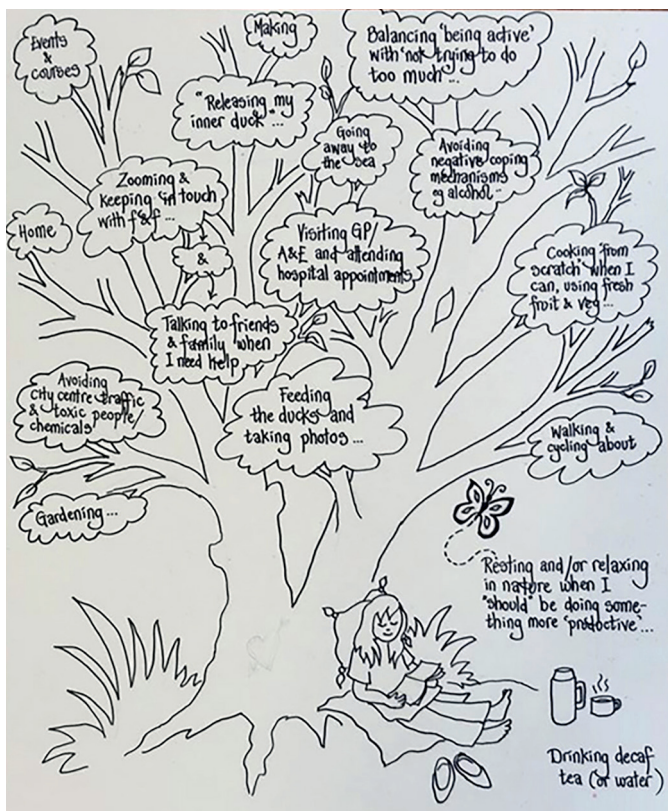 Events
&
courses
Making
Balancing 'being active'
with 'not trying to do
too much'...
"Releasing my
inner duck"...
Going
away to
the sea
Avoiding
negative coping
mechanisms
eg alcohol...
Zooming &
keeping in touch
with f&f...
&
Home
Visiting GP/
A&E and attending
hospital appointments
Cooking 'from
scratch' when I
can, using fresh
fruit & veg...
Talking to friends
& family when
I need help
Avoiding
city centre traffic
& toxic people/
chemicals
Feeding
the ducks and
taking photos...
Walking &
cycling about
Gardening...
Resting and/or relaxing
in nature when I
"should" be doing some-
thing more 'productive'...
Drinking decaf
tea (or water)